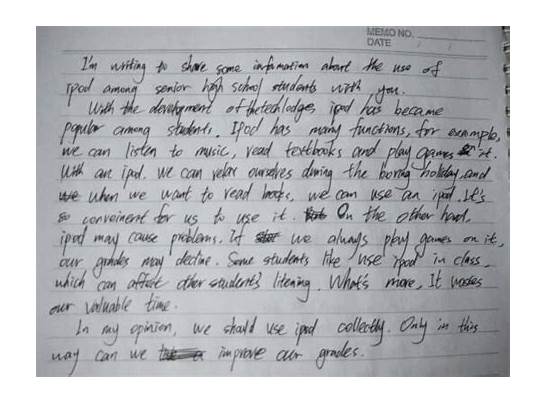 MEMO NO.
DATE / /
I'm writing to share some information about the use of
ipod among senior high school students with you.
With the development of thetechlodges, ipod has became
popular among students. Ipod has many functions, for example,
we can listen to music, read textbooks and play games it.
With an ipad. we can relax ourselves during the boring holiday, and
when we want to read books, we can use an ipad. It's
so convinient for us to use it. On the other hand,
ipad may cause problems. If we always play games on it,
our grades may decline. Some students like use ipad in class,
which can affect other students' litening. What's more, It wastes
our valuable time.
In my opinion, we should use ipad collectly. Only in this
way can we improve our grades.